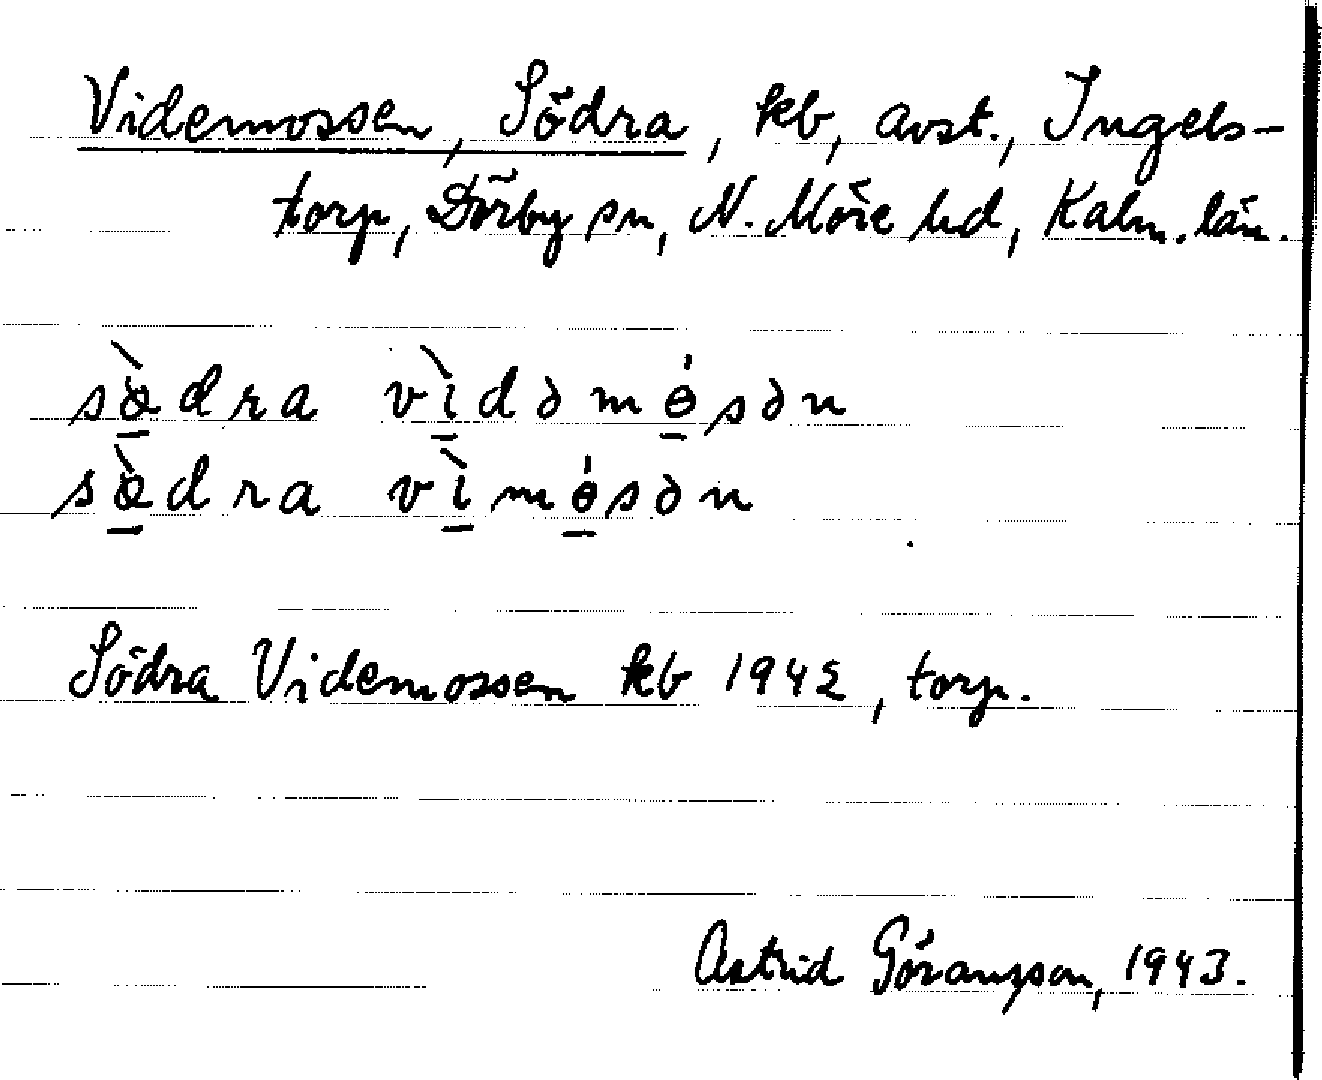 Videmossen, Södra, kb, avst., Ingels-
torp, Dörby sn, N. Möre hd, Kalm. län.
sœ̀dra vìdəmɵ́sən
sœ̀dra vìmɵ́sən
Södra Videmossen kb 1942, torp.
Astrid Göransson, 1943.